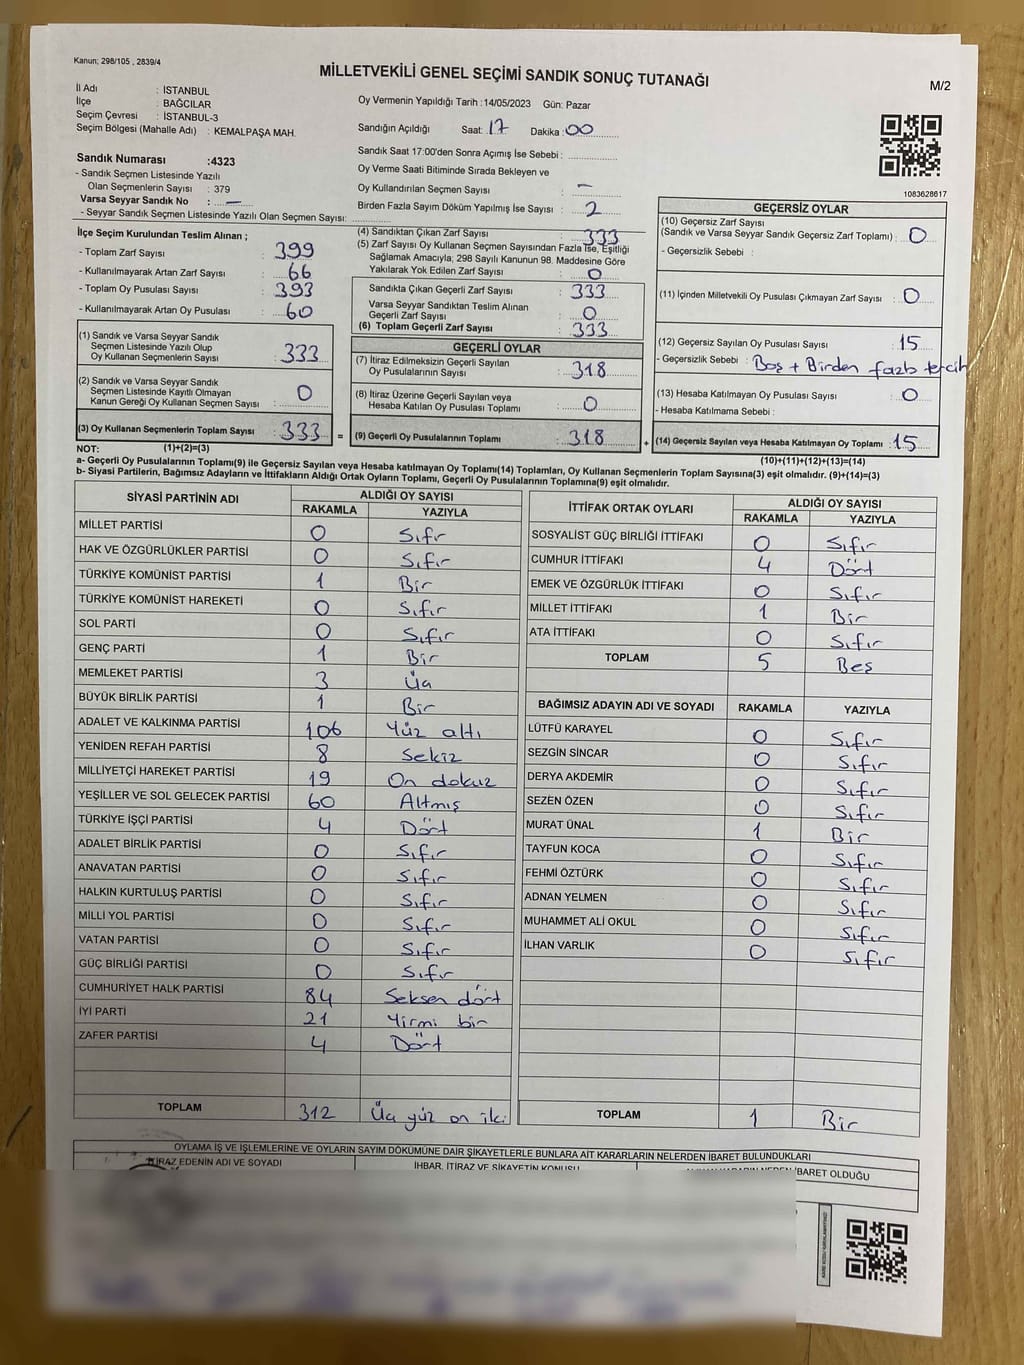 Kanun; 298/105 , 2839/4
MİLLETVEKİLİ GENEL SEÇİMİ SANDIK SONUÇ TUTANAĞI
M/2
İl Adı : İSTANBUL
İlçe : BAĞCILAR
Seçim Çevresi : İSTANBUL-3
Seçim Bölgesi (Mahalle Adı) : KEMALPAŞA MAH.
Oy Vermenin Yapıldığı Tarih : 14/05/2023 Gün: Pazar
Sandığın Açıldığı Saat: 17 Dakika : 00
Sandık Saat 17:00'den Sonra Açımış İse Sebebi :
Oy Verme Saati Bitiminde Sırada Bekleyen ve
Oy Kullandırılan Seçmen Sayısı : –
Birden Fazla Sayım Döküm Yapılmış İse Sayısı : 2
1083628617
Sandık Numarası :4323
- Sandık Seçmen Listesinde Yazılı
Olan Seçmenlerin Sayısı : 379
Varsa Seyyar Sandık No : –
- Seyyar Sandık Seçmen Listesinde Yazılı Olan Seçmen Sayısı:
İlçe Seçim Kurulundan Teslim Alınan ;
- Toplam Zarf Sayısı : 399
- Kullanılmayarak Artan Zarf Sayısı : 66
- Toplam Oy Pusulası Sayısı : 393
- Kullanılmayarak Artan Oy Pusulası : 60
(1) Sandık ve Varsa Seyyar Sandık
Seçmen Listesinde Yazılı Olup
Oy Kullanan Seçmenlerin Sayısı : 333
(2) Sandık ve Varsa Seyyar Sandık
Seçmen Listesinde Kayıtlı Olmayan
Kanun Gereği Oy Kullanan Seçmen Sayısı : 0
(3) Oy Kullanan Seçmenlerin Toplam Sayısı : 333 =
(4) Sandıktan Çıkan Zarf Sayısı : 333
(5) Zarf Sayısı Oy Kullanan Seçmen Sayısından Fazla İse, Eşitliği
Sağlamak Amacıyla; 298 Sayılı Kanunun 98. Maddesine Göre
Yakılarak Yok Edilen Zarf Sayısı : 0
Sandıkta Çıkan Geçerli Zarf Sayısı : 333
Varsa Seyyar Sandıktan Teslim Alınan
Geçerli Zarf Sayısı : 0
(6) Toplam Geçerli Zarf Sayısı : 333
GEÇERLİ OYLAR
(7) İtiraz Edilmeksizin Geçerli Sayılan
Oy Pusulalarının Sayısı : 318
(8) İtiraz Üzerine Geçerli Sayılan veya
Hesaba Katılan Oy Pusulası Toplamı : 0
(9) Geçerli Oy Pusulalarının Toplamı : 318 +
GEÇERSİZ OYLAR
(10) Geçersiz Zarf Sayısı
(Sandık ve Varsa Seyyar Sandık Geçersiz Zarf Toplamı) : 0
- Geçersizlik Sebebi :
(11) İçinden Milletvekili Oy Pusulası Çıkmayan Zarf Sayısı : 0
(12) Geçersiz Sayılan Oy Pusulası Sayısı : 15
- Geçersizlik Sebebi : Boş + Birden fazla tercih
(13) Hesaba Katılmayan Oy Pusulası Sayısı : 0
- Hesaba Katılmama Sebebi :
(14) Geçersiz Sayılan veya Hesaba Katılmayan Oy Toplamı : 15
NOT: (1)+(2)=(3)
(10)+(11)+(12)+(13)=(14)
a- Geçerli Oy Pusulalarının Toplamı(9) ile Geçersiz Sayılan veya Hesaba katılmayan Oy Toplamı(14) Toplamları, Oy Kullanan Seçmenlerin Toplam Sayısına(3) eşit olmalıdır. (9)+(14)=(3)
b- Siyasi Partilerin, Bağımsız Adayların ve İttifakların Aldığı Ortak Oyların Toplamı, Geçerli Oy Pusulalarının Toplamına(9) eşit olmalıdır.
SİYASİ PARTİNİN ADI ALDIĞI OY SAYISI
RAKAMLA YAZIYLA
MİLLET PARTİSİ 0 Sıfır
HAK VE ÖZGÜRLÜKLER PARTİSİ 0 Sıfır
TÜRKİYE KOMÜNİST PARTİSİ 1 Bir
TÜRKİYE KOMÜNİST HAREKETİ 0 Sıfır
SOL PARTİ 0 Sıfır
GENÇ PARTİ 1 Bir
MEMLEKET PARTİSİ 3 Üç
BÜYÜK BİRLİK PARTİSİ 1 Bir
ADALET VE KALKINMA PARTİSİ 106 Yüz altı
YENİDEN REFAH PARTİSİ 8 Sekiz
MİLLİYETÇİ HAREKET PARTİSİ 19 On dokuz
YEŞİLLER VE SOL GELECEK PARTİSİ 60 Altmış
TÜRKİYE İŞÇİ PARTİSİ 4 Dört
ADALET BİRLİK PARTİSİ 0 Sıfır
ANAVATAN PARTİSİ 0 Sıfır
HALKIN KURTULUŞ PARTİSİ 0 Sıfır
MİLLİ YOL PARTİSİ 0 Sıfır
VATAN PARTİSİ 0 Sıfır
GÜÇ BİRLİĞİ PARTİSİ 0 Sıfır
CUMHURİYET HALK PARTİSİ 84 Seksen dört
İYİ PARTİ 21 Yirmi bir
ZAFER PARTİSİ 4 Dört
TOPLAM 312 Üç yüz on iki
İTTİFAK ORTAK OYLARI ALDIĞI OY SAYISI
RAKAMLA YAZIYLA
SOSYALİST GÜÇ BİRLİĞİ İTTİFAKI 0 Sıfır
CUMHUR İTTİFAKI 4 Dört
EMEK VE ÖZGÜRLÜK İTTİFAKI 0 Sıfır
MİLLET İTTİFAKI 1 Bir
ATA İTTİFAKI 0 Sıfır
TOPLAM 5 Beş
BAĞIMSIZ ADAYIN ADI VE SOYADI RAKAMLA YAZIYLA
LÜTFÜ KARAYEL 0 Sıfır
SEZGİN SİNCAR 0 Sıfır
DERYA AKDEMİR 0 Sıfır
SEZEN ÖZEN 0 Sıfır
MURAT ÜNAL 1 Bir
TAYFUN KOCA 0 Sıfır
FEHMİ ÖZTÜRK 0 Sıfır
ADNAN YELMEN 0 Sıfır
MUHAMMET ALİ OKUL 0 Sıfır
İLHAN VARLIK 0 Sıfır
TOPLAM 1 Bir
OYLAMA İŞ VE İŞLEMLERİNE VE OYLARIN SAYIM DÖKÜMÜNE DAİR ŞİKAYETLERLE BUNLARA AİT KARARLARIN NELERDEN İBARET BULUNDUKLARI
İTİRAZ EDENİN ADI VE SOYADI İHBAR, İTİRAZ VE ŞİKAYETİN KONUSU İBARET OLDUĞU